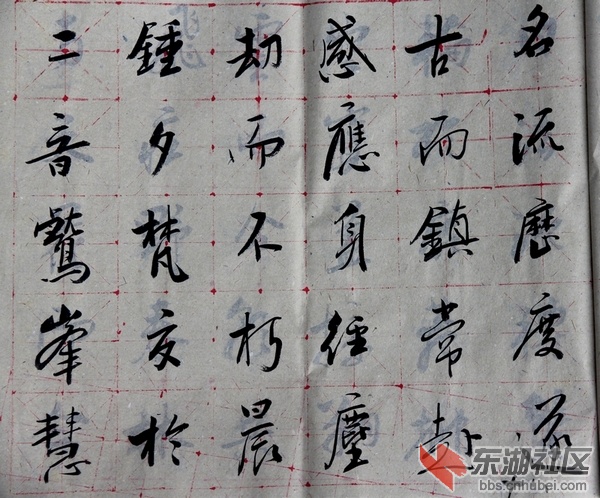 名流歷度遂
古而鎮常赴
感應身經塵
劫而不朽晨
鍾夕梵交於
二音鷲峯慧
东湖社区
bbs.cnhubei.com